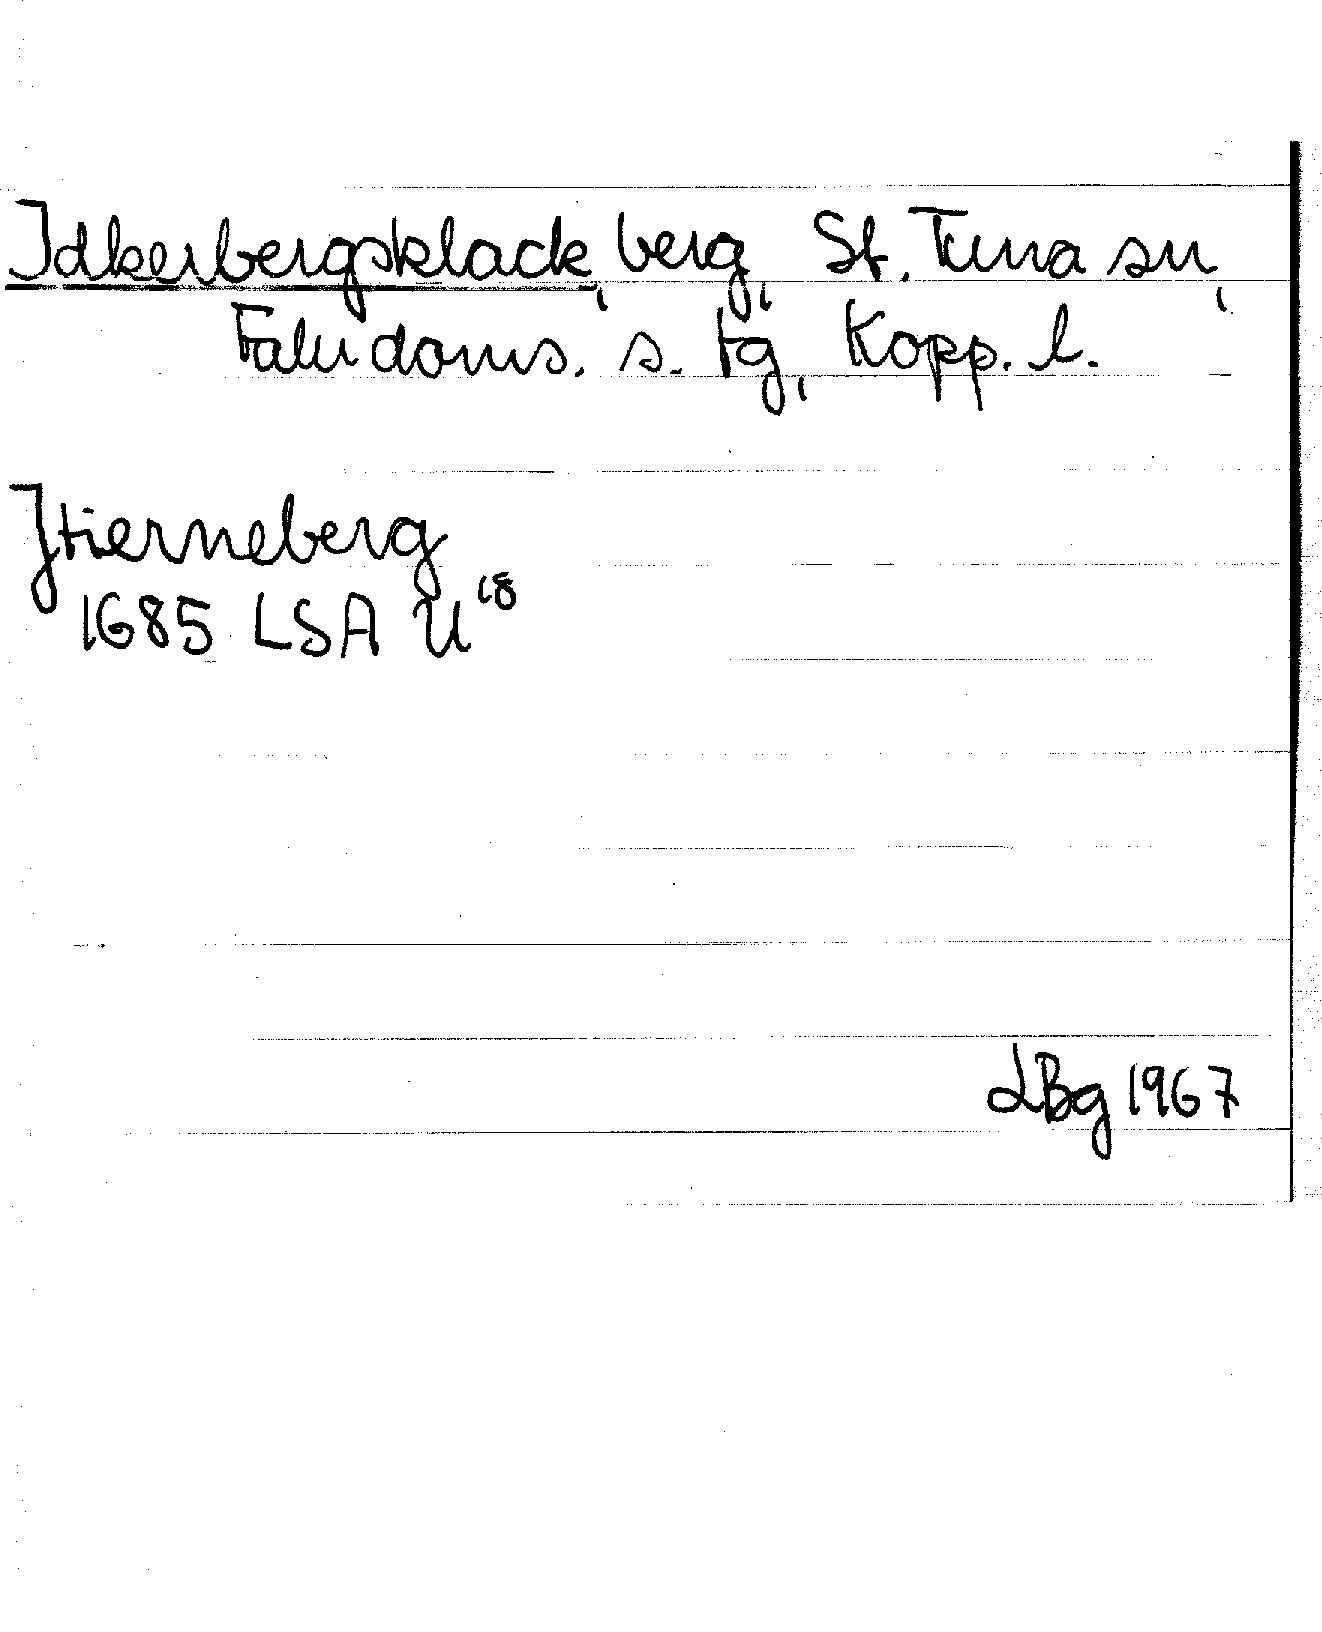 Idkerbergsklack, berg, St. Tuna sn,
Falu doms. s. tg, Kopp. l.
Jtierneberg
1685 LSA U 18
LBg 1967